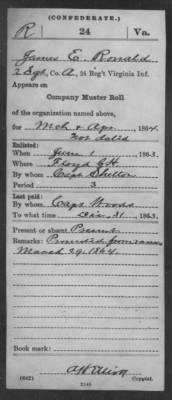 (CONFEDERATE.)
R 24 Va.
James E. Ronald
2 Sgt, Co. A, 24 Reg't Virginia Inf.
Appears on
Company Muster Roll
of the organization named above,
for Mch & Apr, 1864.
not dated
Enlisted:
When June 1, 1863.
Where Floyd C.H.
By whom Capt Shelton
Period 3
Last paid:
By whom Capt Woods
To what time Dec. 31, 1863.
Present or absent Present
Remarks: Promoted from ranks
March 29, 1864.
Book mark:
(642) Copyist.